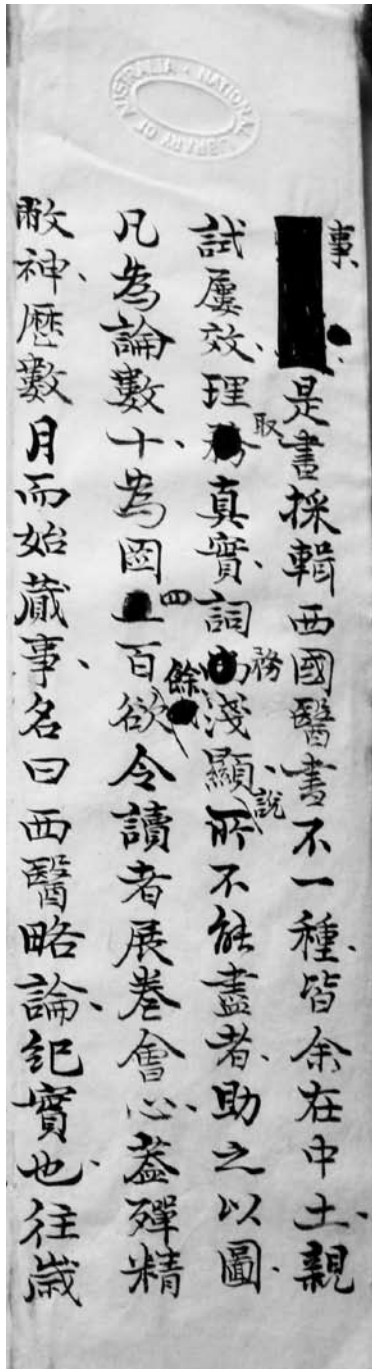 NATIONAL LIBRARY OF AUSTRALIA
事、
是書採輯西國醫書不一種、皆余在中土、親
試屢效、理取真實、詞務淺顯、說所不能盡者、助之以圖、
凡為論數十、為圖四百餘欲令讀者展卷會心、蓋殫精
敝神、歷數月而始蕆事、名曰西醫略論、紀實也、往歲